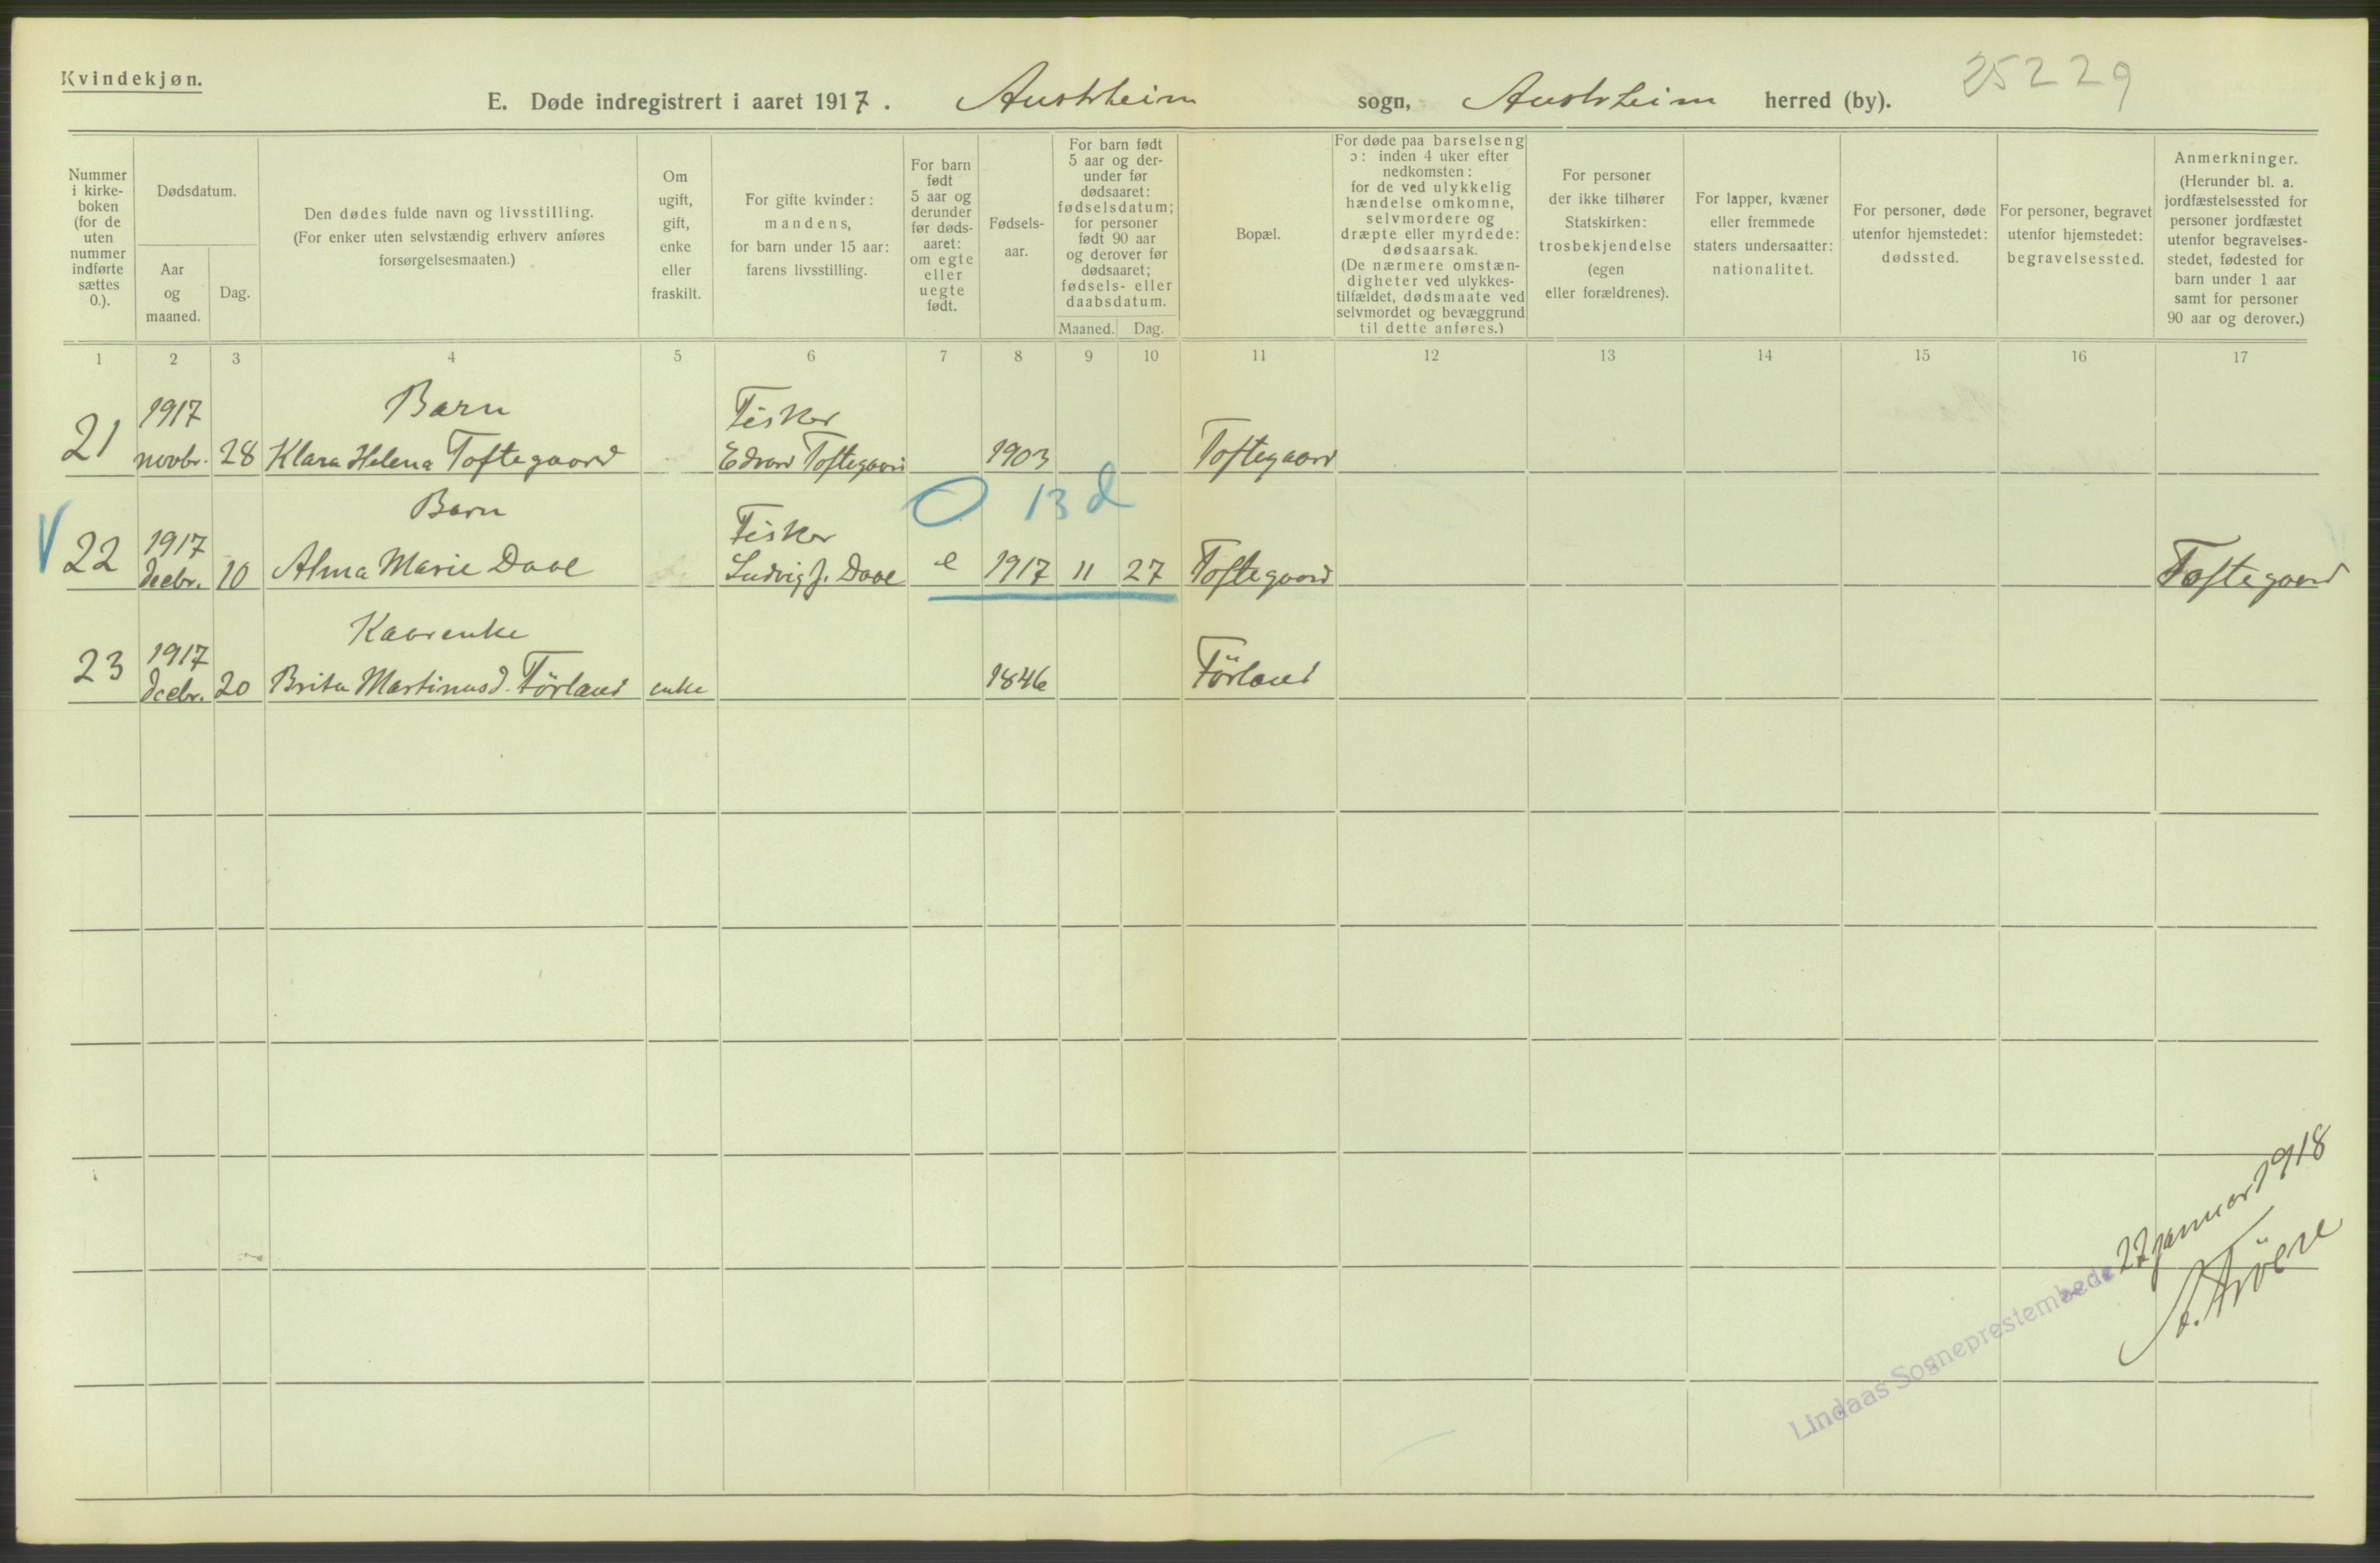 Kvindekjøn.
E. Døde indregistrert i aaret 1917. Austrheim sogn, Austrheim herred (by).
25229
Nummer
i kirke-
boken
(for de
uten
nummer
indførte
sættes
0.).
Dødsdatum.
Aar
og
maaned.
Dag.
Den dødes fulde navn og livsstilling.
(For enker uten selvstændig erhverv anføres
forsørgelsesmaaten.)
Om
ugift,
gift,
enke
eller
fraskilt.
For gifte kvinder:
mandens,
for barn under 15 aar:
farens livsstilling.
For barn
født
5 aar og
derunder
før døds-
aaret:
om egte
eller
uegte
født.
Fødsels-
aar.
For barn født
5 aar og der-
under før
dødsaaret:
fødselsdatum;
for personer
født 90 aar
og derover før
dødsaaret;
fødsels- eller
daabsdatum.
Maaned. Dag.
Bopæl.
For døde paa barselseng
ɔ: inden 4 uker efter
nedkomsten:
for de ved ulykkelig
hændelse omkomne,
selvmordere og
dræpte eller myrdede:
dødsaarsak.
(De nærmere omstæn-
digheter ved ulykkes-
tilfældet, dødsmaate ved
selvmordet og bevæggrund
til dette anføres.)
For personer
der ikke tilhører
Statskirken:
trosbekjendelse
(egen
eller forældrenes).
For lapper, kvæner
eller fremmede
staters undersaatter:
nationalitet.
For personer, døde
utenfor hjemstedet:
dødssted.
For personer, begravet
utenfor hjemstedet:
begravelsessted.
Anmerkninger.
(Herunder bl. a.
jordfæstelsessted for
personer jordfæstet
utenfor begravelses-
stedet, fødested for
barn under 1 aar
samt for personer
90 aar og derover.)
1 2 3 4 5 6 7 8 9 10 11 12 13 14 15 16 17
1917 Barn Fisker
21 novbr. 28 Klara Helena Toftegaard Edvard Toftegaard 1903 Toftegaard
O 13 d
1917 Barn Fisker
V 22 Decbr. 10 Alma Marie Daae Ludvig J. Daae e 1917 11 27 Toftegaard Toftegaard
1917 Kaarenke
23 Decbr. 20 Brita Martinusd. Förland enke 1846 Förland
Lindaas Sogneprestembede 27 januar 1918